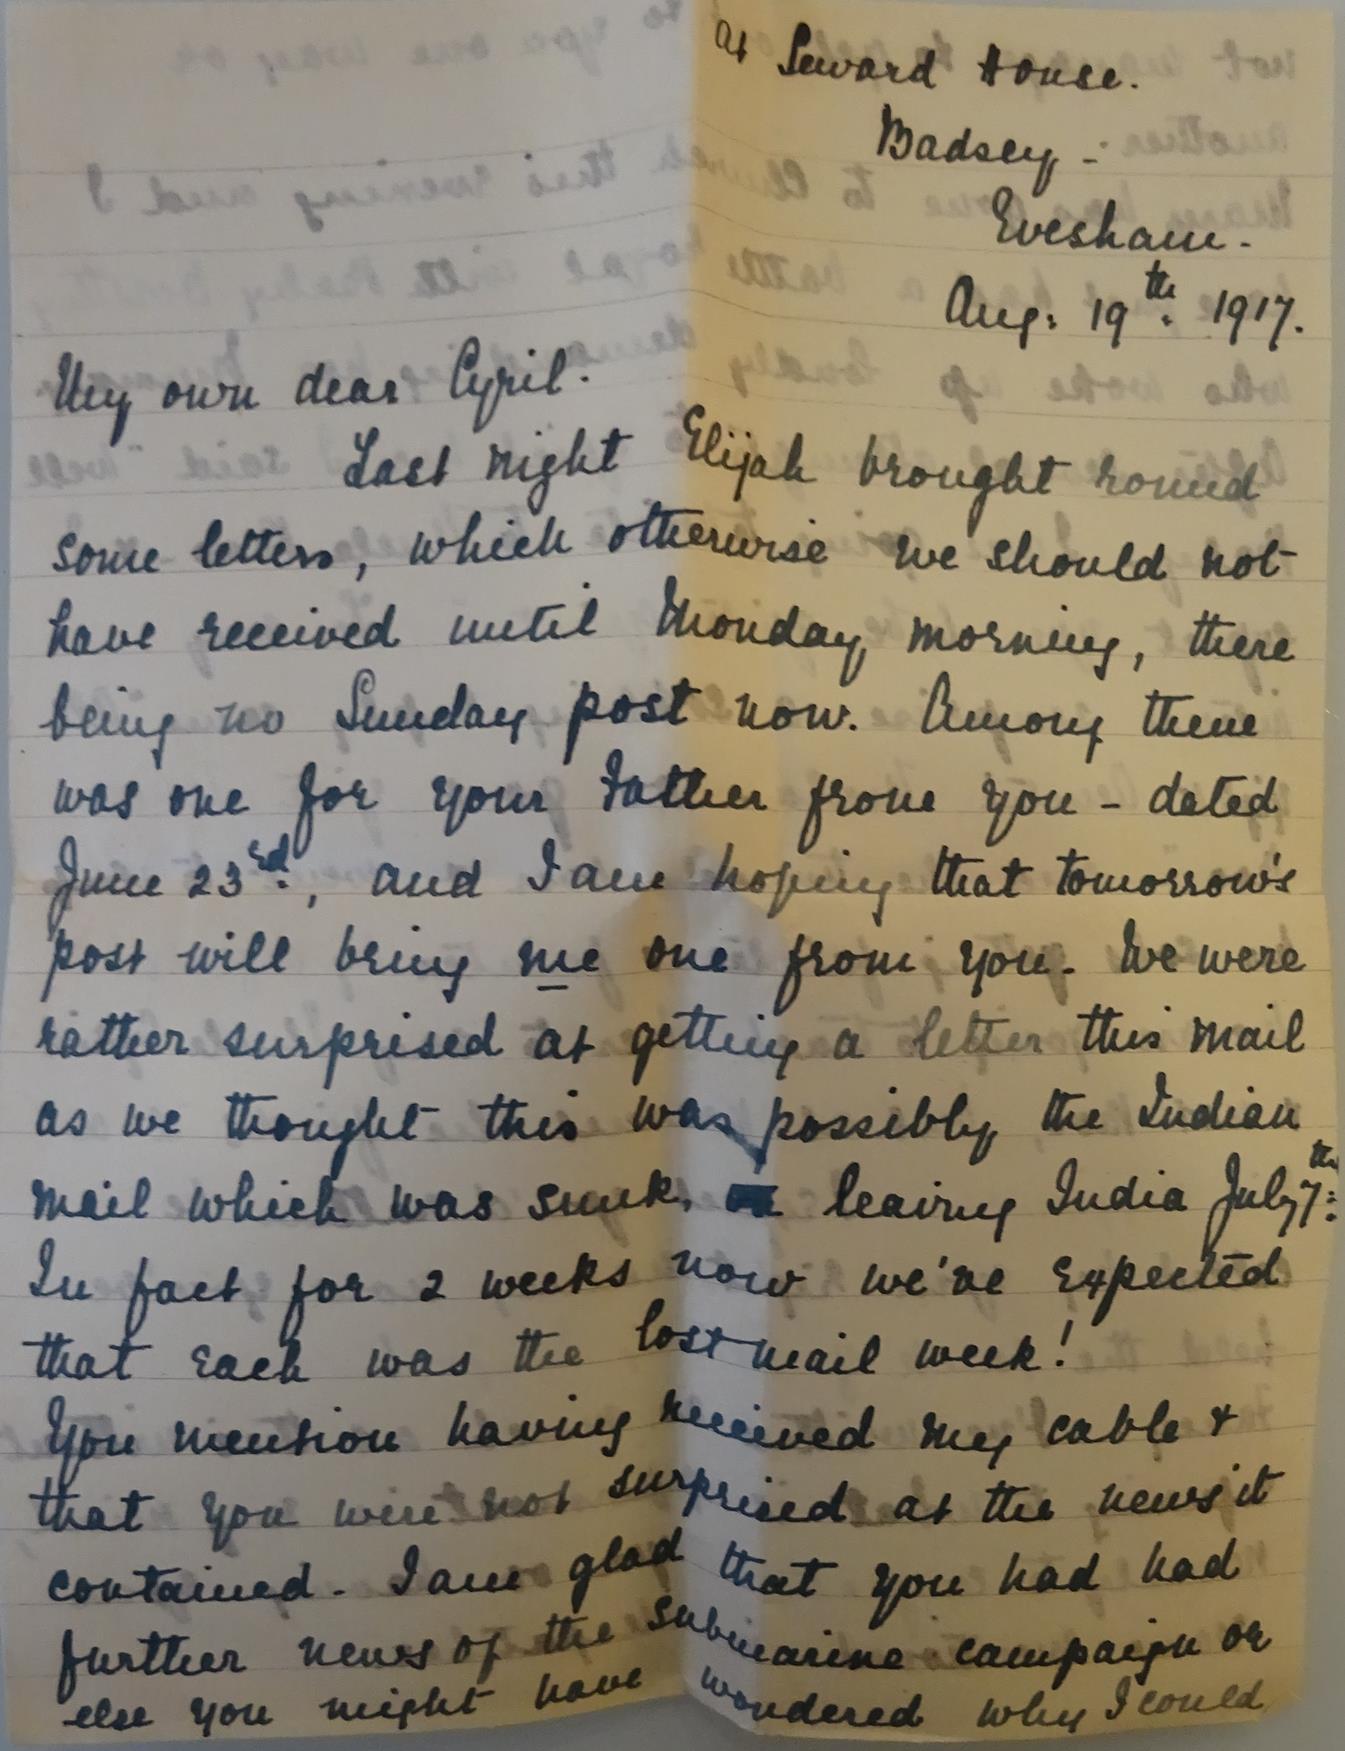 At Seward House.
Badsey -
Evesham -
Aug: 19th: 1917.
My own dear Cyril.
Last night Elijah brought round
some letters, which otherwise we should not
have received until Monday morning, there
being no Sunday post now. Among these
was one for your Father from you - dated
June 23rd:, and I am hoping that tomorrow's
post will bring me one from you. We were
rather surprised at getting a letter this mail
as we thought this was possibly the Indian
mail which was sunk, leaving India July 7th:
In fact for 2 weeks now we've expected
that each was the lost mail week!
You mention having received my cable &
that you were not surprised at the news it
contained. I am glad that you had had
further news of the submarine campaign or
else you might have wondered why I could